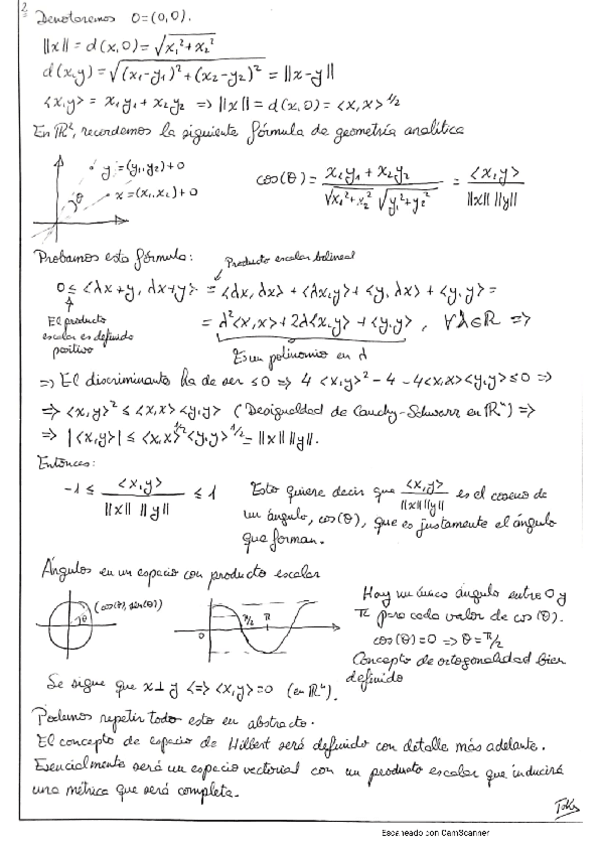 2
Denotaremos O=(0,0).
||x|| = d(x,0) = √(x₁²+x₂²)
d(x,y) = √((x₁-y₁)²+(x₂-y₂)²) = ||x-y||
<x,y> = x₁y₁ + x₂y₂ => ||x|| = d(x,0) = <x,x>^1/2
En ℝ², recordemos la siguiente fórmula de geometría analítica
y=(y₁,y₂)≠0
x=(x₁,x₂)≠0
θ
cos(θ) = (x₁y₁ + x₂y₂)/(√(x₁²+x₂²) √(y₁²+y₂²)) = <x,y>/(||x|| ||y||)
Probamos esta fórmula:
Producto escalar bilineal
0 ≤ <λx+y, λx+y> = <λx, λx> + <λx,y> + <y,λx> + <y,y> =
El producto
escalar es definido
positivo
= λ²<x,x> + 2λ<x,y> + <y,y>, ∀λ∈ℝ =>
Es un polinomio en λ
=> El discriminante ha de ser ≤0 => 4 <x,y>² - 4 - 4<x,x><y,y> ≤0 =>
=> <x,y>² ≤ <x,x> <y,y> (Desigualdad de Cauchy-Schwarz en ℝⁿ) =>
=> |<x,y>| ≤ <x,x>^1/2 <y,y>^1/2 = ||x|| ||y||.
Entonces:
-1 ≤ <x,y>/(||x|| ||y||) ≤ 1
Esto quiere decir que <x,y>/(||x|| ||y||) es el coseno de
un ángulo, cos(θ), que es justamente el ángulo
que forman.
Ángulos en un espacio con producto escalar
(cos(θ), sen(θ))
θ
0
π/2
π
Hay un único ángulo entre 0 y
π para cada valor de cos(θ).
cos(θ)=0 => θ=π/2
Concepto de ortogonalidad bien
definido
Se sigue que x⊥y <=> <x,y>=0 (en ℝⁿ).
Podemos repetir todo esto en abstracto.
El concepto de espacio de Hilbert será definido con detalle más adelante.
Esencialmente será un espacio vectorial con un producto escalar que inducirá
una métrica que será completa.
Escaneado con CamScanner